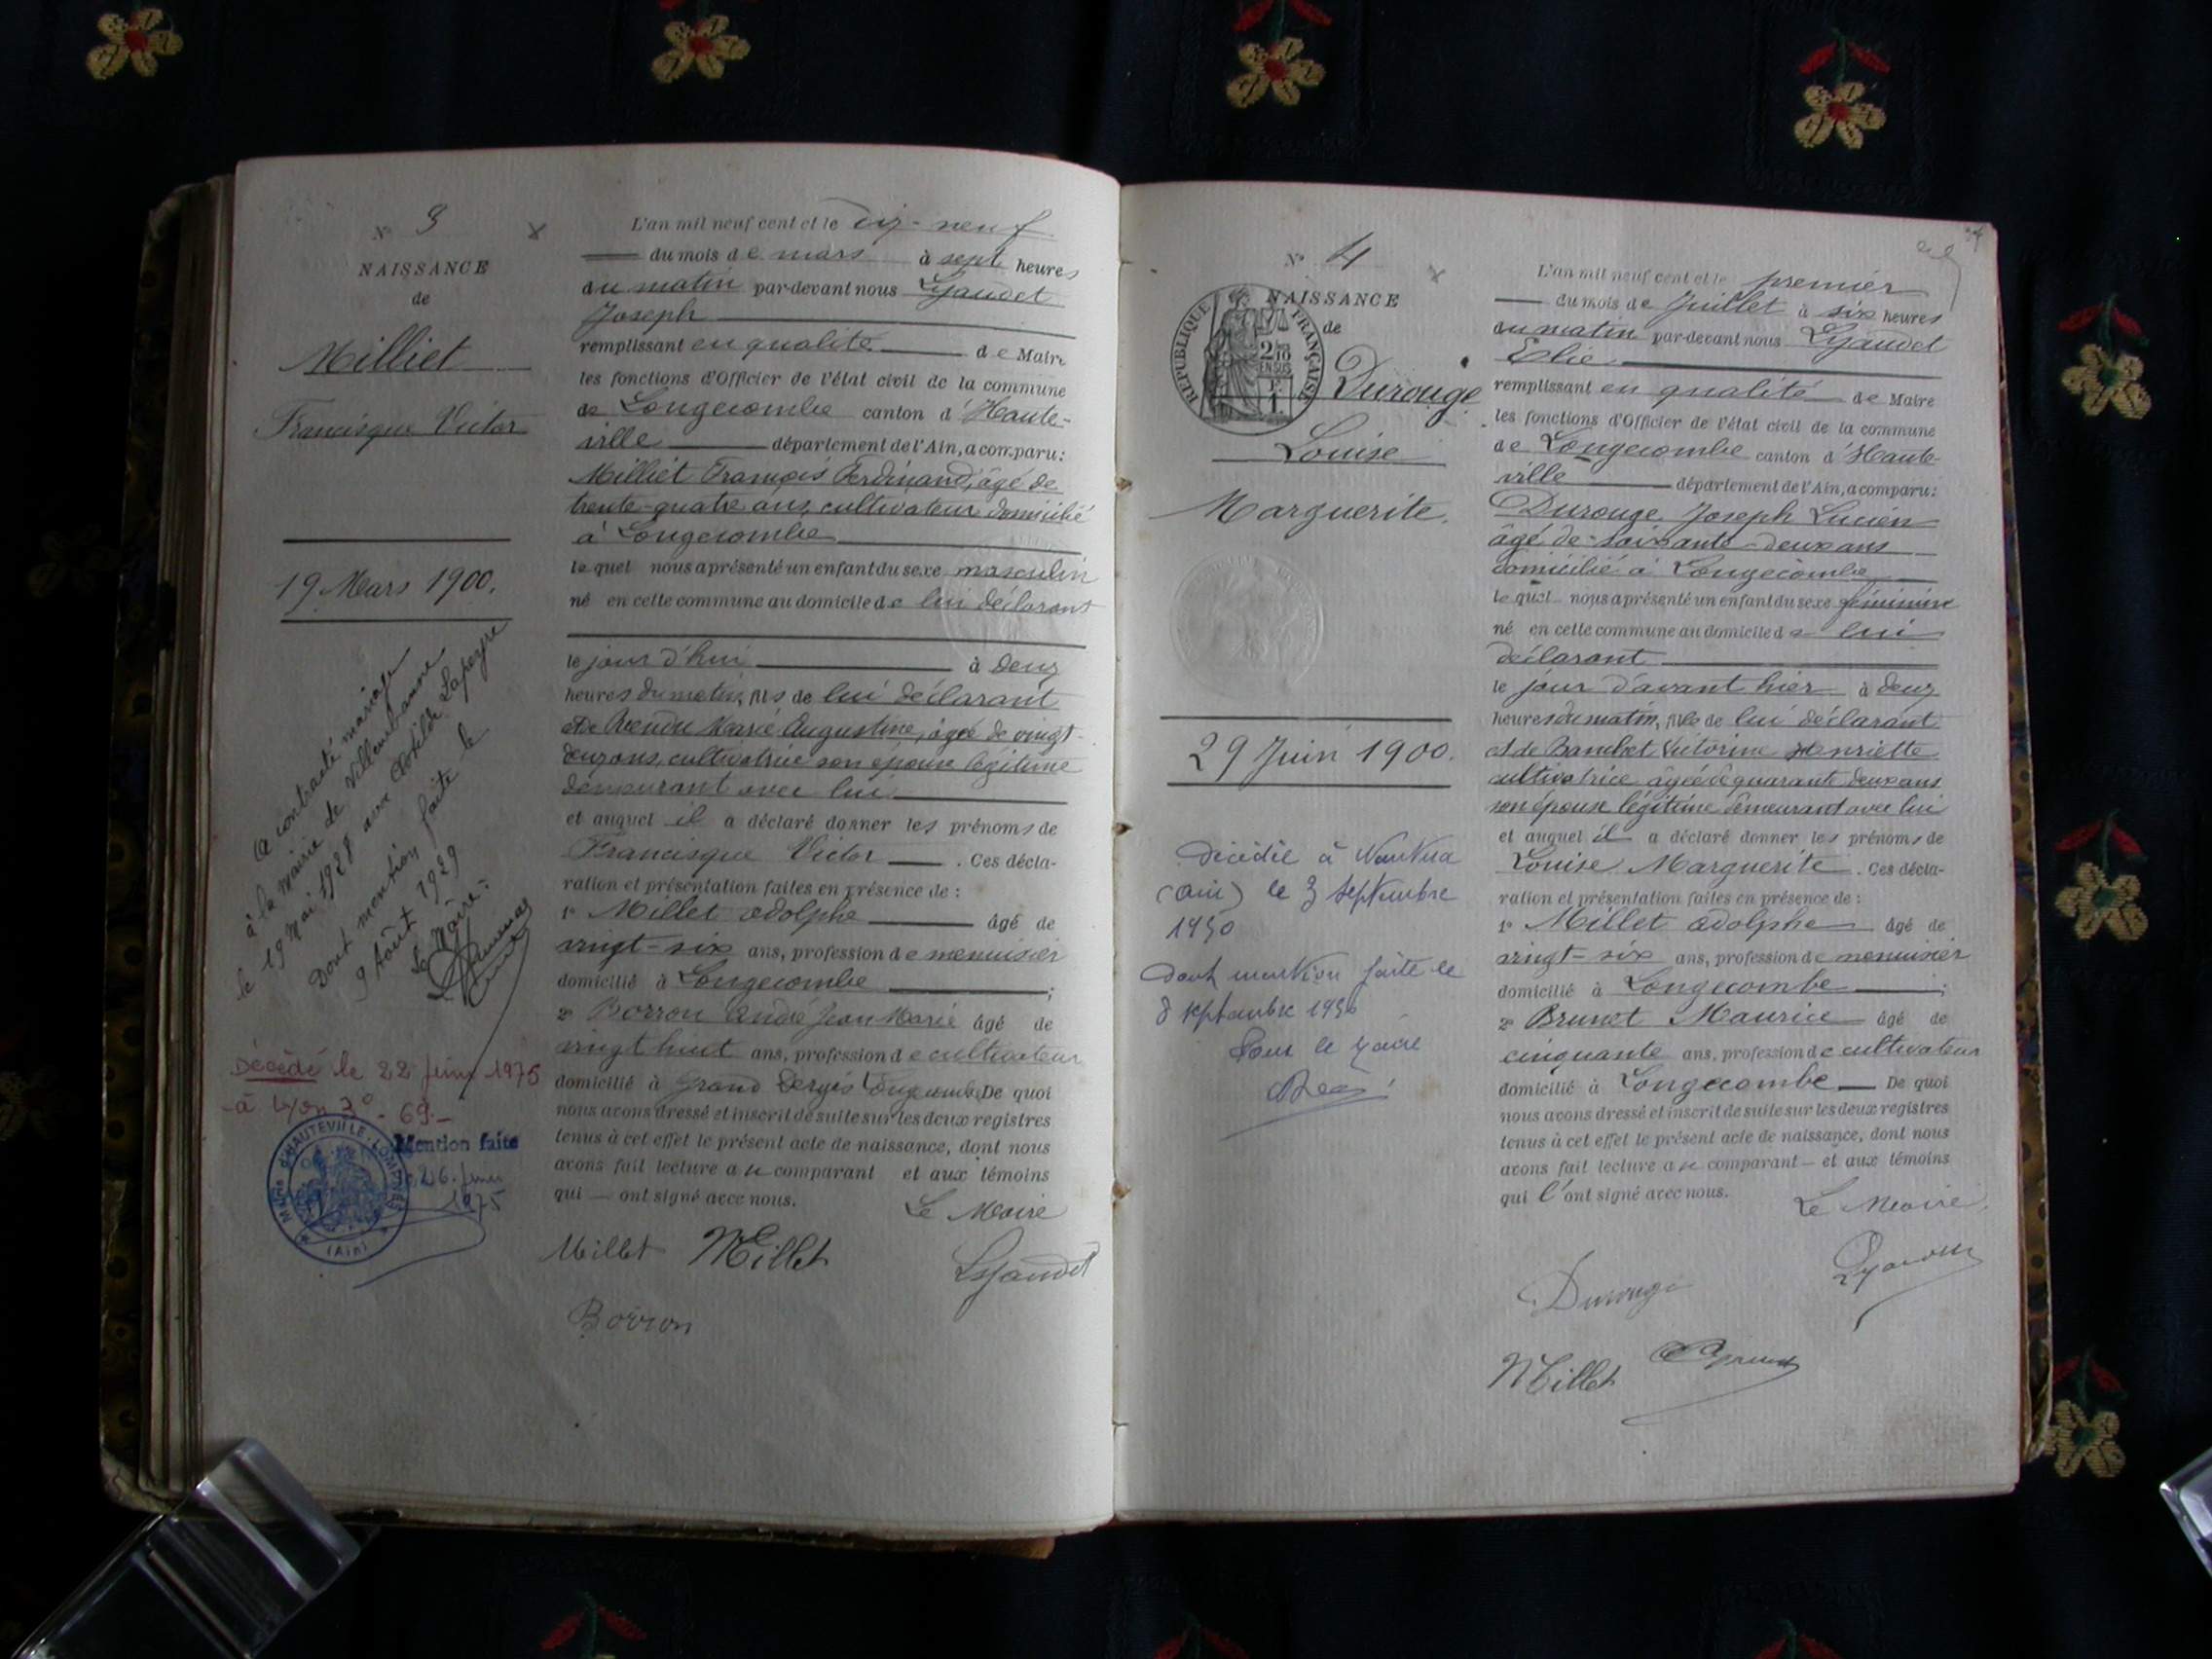 N° 3
NAISSANCE
de
Milliet
Francisque Victor
19 Mars 1900.
A contracté mariage
à la Mairie de Villeurbanne
le 19 Mai 1928 avec Clotilde Lapeyre
Dont mention faite le
9 Août 1929
Le Maire:
Décédé le 22 juin 1975
à Lyon 3° - 69.-
MAIRIE D'HAUTEVILLE-LOMPNES
(Ain)
Mention faite
26 juin
1975
L'an mil neuf cent et le dix-neuf
du mois de mars à sept heures
du matin par-devant nous Lyaudet
Joseph
remplissant en qualité de Maire
les fonctions d'Officier de l'état civil de la commune
de Longecombe canton d'Haute-
ville département de l'Ain, a comparu:
Milliet François Ferdinand, âgé de
trente-quatre ans, cultivateur domicilié
à Longecombe
lequel nous a présenté un enfant du sexe masculin
né en cette commune au domicile de lui déclarant
le jour d'hui à deux
heures du matin, fils de lui déclarant
et de Marie Augustine, âgée de vingt-
deux ans, cultivatrice son épouse légitime
demeurant avec lui
et auquel il a déclaré donner les prénoms de
Francisque Victor. Ces décla-
ration et présentation faites en présence de :
1° Millet Adolphe âgé de
vingt-six ans, profession de menuisier
domicilié à Longecombe ;
2° Borron André Jean Marie âgé de
vingt huit ans, profession de cultivateur
domicilié à Grand Longecombe De quoi
nous avons dressé et inscrit de suite sur les deux registres
tenus à cet effet le présent acte de naissance, dont nous
avons fait lecture au comparant et aux témoins
qui ont signé avec nous.
Le Maire
Milliet Millet Lyaudet
Borron
N° 4
NAISSANCE
de
RÉPUBLIQUE FRANÇAISE
2/10
EN SUS
F.
1.
Durouge
Louise
Marguerite.
29 Juin 1900.
Décédée à Nantua
(Ain) le 3 septembre
1950
dont mention faite le
8 septembre 1950
Pour le Maire
L'an mil neuf cent et le premier
du mois de Juillet à six heures
du matin par-devant nous Lyaudet
Elie
remplissant en qualité de Maire
les fonctions d'Officier de l'état civil de la commune
de Longecombe canton d'Haute-
ville département de l'Ain, a comparu:
Durouge Joseph Lucien
âgé de soixante-deux ans
domicilié à Longecombe
lequel nous a présenté un enfant du sexe féminin
né en cette commune au domicile de lui
déclarant
le jour d'avant hier à deux
heures du matin, fille de lui déclarant
et de Victorine Henriette
cultivatrice âgée de quarante deux ans
son épouse légitime demeurant avec lui
et auquel il a déclaré donner les prénoms de
Louise Marguerite. Ces décla-
ration et présentation faites en présence de :
1° Millet Adolphe âgé de
vingt-six ans, profession de menuisier
domicilié à Longecombe ;
2° Brunet Maurice âgé de
cinquante ans, profession de cultivateur
domicilié à Longecombe De quoi
nous avons dressé et inscrit de suite sur les deux registres
tenus à cet effet le présent acte de naissance, dont nous
avons fait lecture au comparant et aux témoins
qui l'ont signé avec nous.
Le Maire
Durouge Lyaudet
Millet Brunet